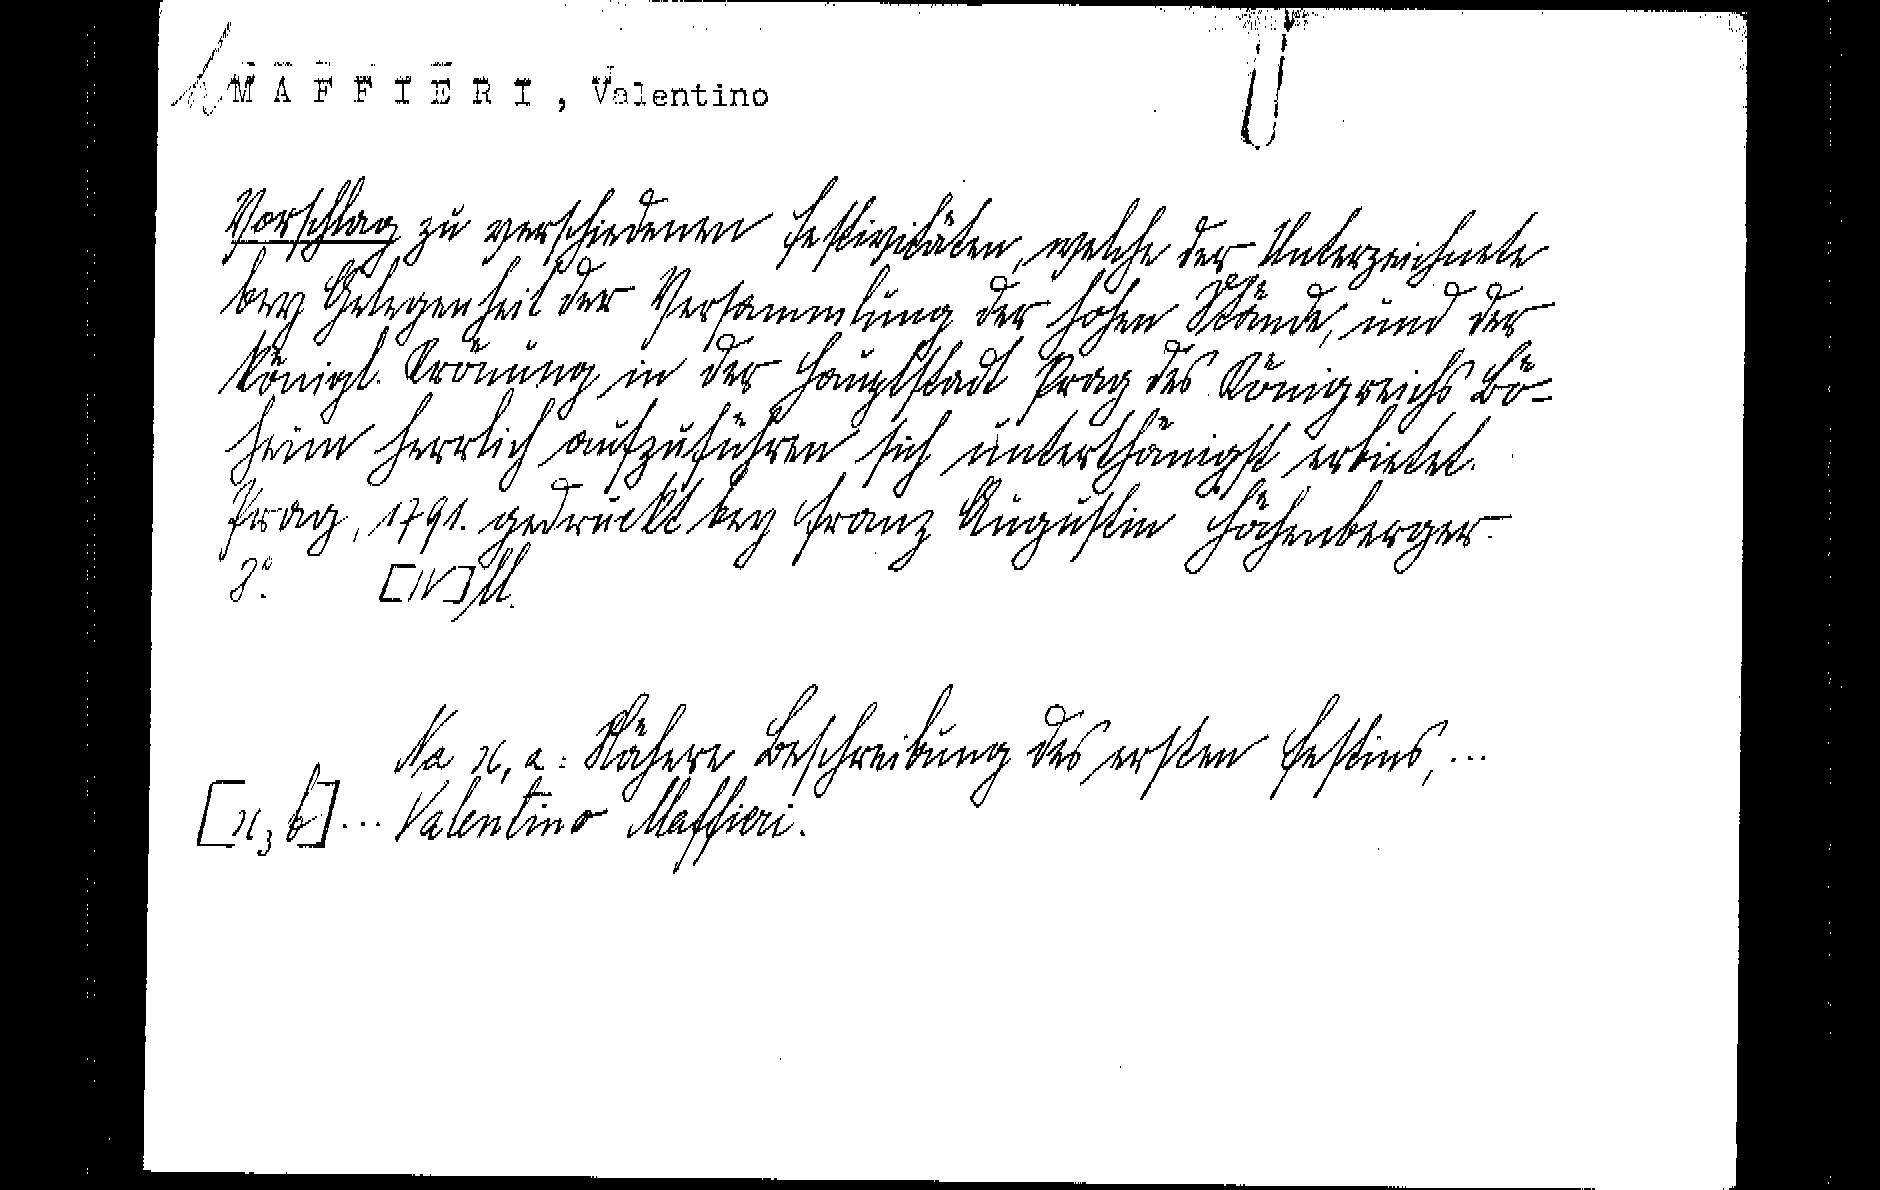 MAFFIERI, Valentino
Vorschlag zu verschiedenen Festivitäten, welche der Unterzeichnete
bey Gelegenheit der Versammlung der hohen Stände, und der
königl. Krönung in der Hauptstadt Prag des Königreichs Bö-
heim herrlich aufzuführen sich unterthänigst erbietet.
Prag, 1791. gedruckt bey Franz Augustin Höchenberger.
8°. [IV] ll.
Na
Nähere Beschreibung des ersten Festins, ...
... Valentino Maffieri.